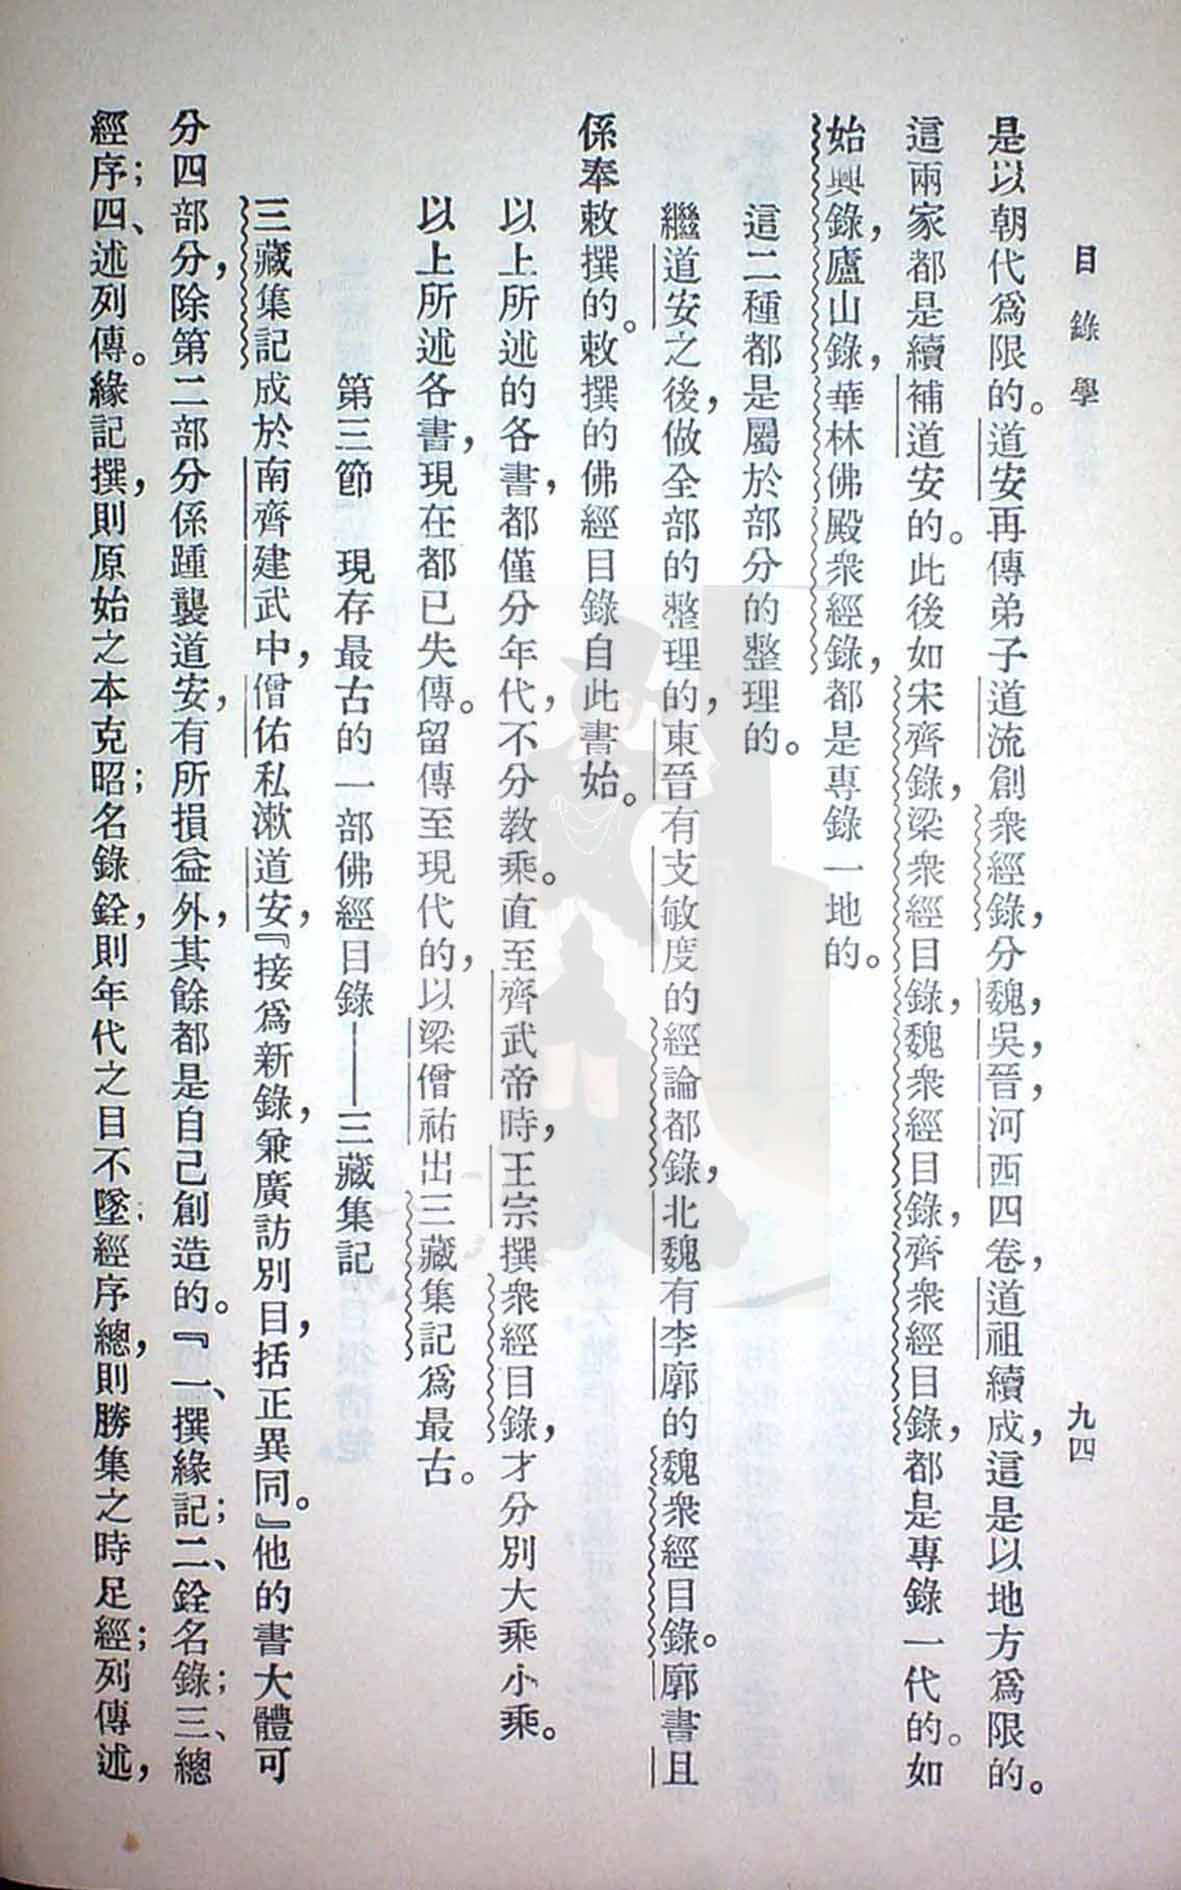 目錄學
九四
是以朝代爲限的。道安再傳弟子道流創衆經錄，分魏，吳，晉，河西四卷，道祖續成，這是以地方爲限的。
這兩家都是續補道安的。此後如宋齊錄，梁衆經目錄，魏衆經目錄，齊衆經目錄，都是專錄一代的。如
始興錄，廬山錄，華林佛殿衆經錄，都是專錄一地的。
這二種都是屬於部分的整理的。
繼道安之後，做全部的整理的，東晉有支敏度的經論都錄，北魏有李廓的魏衆經目錄。廓書且
係奉敕撰的。敕撰的佛經目錄自此書始。
以上所述的各書，都僅分年代，不分教乘。直至齊武帝時，王宗撰衆經目錄，才分別大乘小乘。
以上所述各書，現在都已失傳。留傳至現代的，以梁僧祐出三藏集記爲最古。
第三節　現存最古的一部佛經目錄——三藏集記
三藏集記成於南齊建武中，僧佑私漱道安，『接爲新錄，兼廣訪別目，括正異同。』他的書大體可
分四部分，除第二部分係踵襲道安，有所損益外，其餘都是自己創造的。『一、撰緣記；二、銓名錄；三、總
經序；四、述列傳。緣記撰，則原始之本克昭；名錄銓，則年代之目不墜；經序總，則勝集之時足經；列傳述，